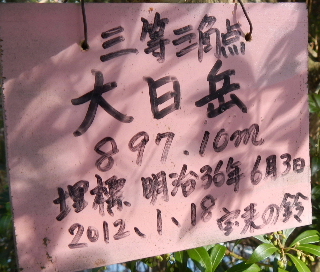 三等三角点
大日岳
897.10m
埋標 明治36年6月3日
2012.1.18 宝来の鈴